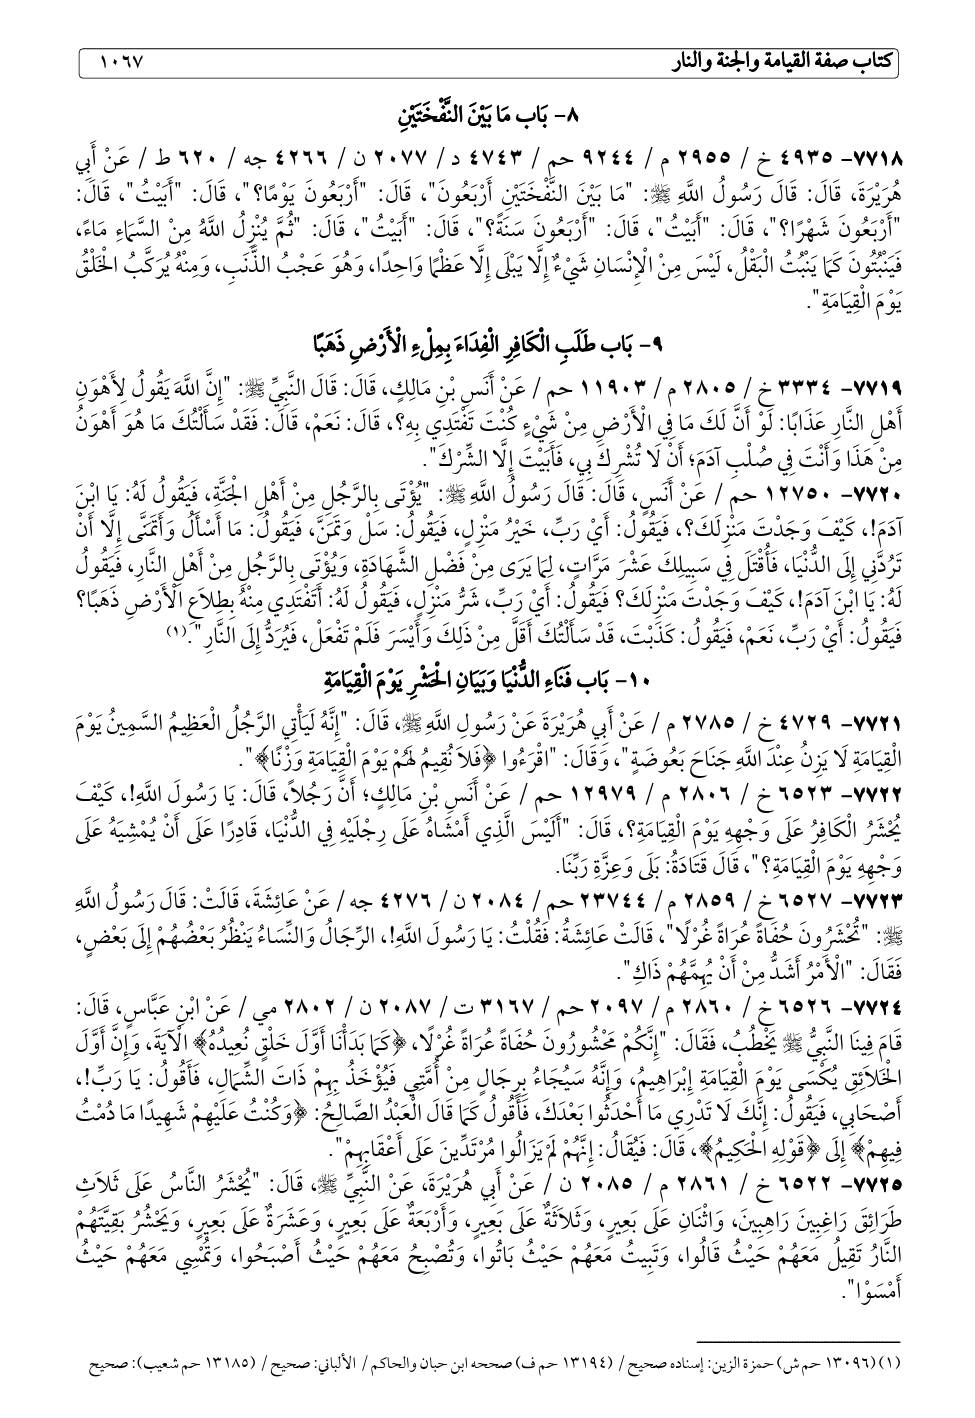 كتاب صفة القيامة والجنة والنار ١٠٦٧
٨- بَاب مَا بَيْنَ النَّفْخَتَيْنِ
٧٧١٨- ٤٩٣٥ خ / ٢٩٥٥ م / ٩٢٤٤ حم / ٤٧٤٣ د / ٢٠٧٧ ن / ٤٢٦٦ جه / ٦٢٠ ط / عَنْ أَبِي
هُرَيْرَةَ، قَالَ: قَالَ رَسُولُ اللَّهِ ﷺ: "مَا بَيْنَ النَّفْخَتَيْنِ أَرْبَعُونَ"، قَالَ: "أَرْبَعُونَ يَوْمًا؟"، قَالَ: "أَبَيْتُ"، قَالَ:
"أَرْبَعُونَ شَهْرًا؟"، قَالَ: "أَبَيْتُ"، قَالَ: "أَرْبَعُونَ سَنَةً؟"، قَالَ: "أَبَيْتُ"، قَالَ: "ثُمَّ يُنْزِلُ اللَّهُ مِنْ السَّمَاءِ مَاءً،
فَيَنْبُتُونَ كَمَا يَنْبُتُ الْبَقْلُ، لَيْسَ مِنْ الْإِنْسَانِ شَيْءٌ إِلَّا يَبْلَى إِلَّا عَظْمًا وَاحِدًا، وَهُوَ عَجْبُ الذَّنَبِ، وَمِنْهُ يُرَكَّبُ الْخَلْقُ
يَوْمَ الْقِيَامَةِ".
٩- بَاب طَلَبِ الْكَافِرِ الْفِدَاءَ بِمِلْءِ الْأَرْضِ ذَهَبًا
٧٧١٩- ٣٣٣٤ خ / ٢٨٠٥ م / ١١٩٠٣ حم / عَنْ أَنَسِ بْنِ مَالِكٍ، قَالَ: قَالَ النَّبِيِّ ﷺ: "إِنَّ اللَّهَ يَقُولُ لِأَهْوَنِ
أَهْلِ النَّارِ عَذَابًا: لَوْ أَنَّ لَكَ مَا فِي الْأَرْضِ مِنْ شَيْءٍ كُنْتَ تَفْتَدِي بِهِ؟، قَالَ: نَعَمْ، قَالَ: فَقَدْ سَأَلْتُكَ مَا هُوَ أَهْوَنُ
مِنْ هَذَا وَأَنْتَ فِي صُلْبِ آدَمَ؛ أَنْ لَا تُشْرِكَ بِي، فَأَبَيْتَ إِلَّا الشِّرْكَ".
٧٧٢٠- ١٢٧٥٠ حم / عَنْ أَنَسٍ، قَالَ: قَالَ رَسُولُ اللَّهِ ﷺ: "يُؤْتَى بِالرَّجُلِ مِنْ أَهْلِ الْجَنَّةِ، فَيَقُولُ لَهُ: يَا ابْنَ
آدَمَ!، كَيْفَ وَجَدْتَ مَنْزِلَكَ؟، فَيَقُولُ: أَيْ رَبِّ، خَيْرُ مَنْزِلٍ، فَيَقُولُ: سَلْ وَتَمَنَّ، فَيَقُولُ: مَا أَسْأَلُ وَأَتَمَنَّى إِلَّا أَنْ
تَرُدَّنِي إِلَى الدُّنْيَا، فَأُقْتَلَ فِي سَبِيلِكَ عَشْرَ مَرَّاتٍ، لِمَا يَرَى مِنْ فَضْلِ الشَّهَادَةِ، وَيُؤْتَى بِالرَّجُلِ مِنْ أَهْلِ النَّارِ، فَيَقُولُ
لَهُ: يَا ابْنَ آدَمَ!، كَيْفَ وَجَدْتَ مَنْزِلَكَ؟ فَيَقُولُ: أَيْ رَبِّ، شَرُّ مَنْزِلٍ، فَيَقُولُ لَهُ: أَتَفْتَدِي مِنْهُ بِطِلَاعِ الْأَرْضِ ذَهَبًا؟
فَيَقُولُ: أَيْ رَبِّ، نَعَمْ، فَيَقُولُ: كَذَبْتَ، قَدْ سَأَلْتُكَ أَقَلَّ مِنْ ذَلِكَ وَأَيْسَرَ فَلَمْ تَفْعَلْ، فَيُرَدُّ إِلَى النَّارِ".(١)
١٠- بَاب فَنَاءِ الدُّنْيَا وَبَيَانِ الْحَشْرِ يَوْمَ الْقِيَامَةِ
٧٧٢١- ٤٧٢٩ خ / ٢٧٨٥ م / عَنْ أَبِي هُرَيْرَةَ عَنْ رَسُولِ اللَّهِ ﷺ، قَالَ: "إِنَّهُ لَيَأْتِي الرَّجُلُ الْعَظِيمُ السَّمِينُ يَوْمَ
الْقِيَامَةِ لَا يَزِنُ عِنْدَ اللَّهِ جَنَاحَ بَعُوضَةٍ"، وَقَالَ: "اقْرَءُوا ﴿فَلاَ نُقِيمُ لَهُمْ يَوْمَ الْقِيَامَةِ وَزْنًا﴾".
٧٧٢٢- ٦٥٢٣ خ / ٢٨٠٦ م / ١٢٩٧٩ حم / عَنْ أَنَسِ بْنِ مَالِكٍ؛ أَنَّ رَجُلاً، قَالَ: يَا رَسُولَ اللَّهِ!، كَيْفَ
يُحْشَرُ الْكَافِرُ عَلَى وَجْهِهِ يَوْمَ الْقِيَامَةِ؟، قَالَ: "أَلَيْسَ الَّذِي أَمْشَاهُ عَلَى رِجْلَيْهِ فِي الدُّنْيَا، قَادِرًا عَلَى أَنْ يُمْشِيَهُ عَلَى
وَجْهِهِ يَوْمَ الْقِيَامَةِ؟"، قَالَ قَتَادَةُ: بَلَى وَعِزَّةِ رَبِّنَا.
٧٧٢٣- ٦٥٢٧ خ / ٢٨٥٩ م / ٢٣٧٤٤ حم / ٢٠٨٤ ن / ٤٢٧٦ جه / عَنْ عَائِشَةَ، قَالَتْ: قَالَ رَسُولُ اللَّهِ
ﷺ: "تُحْشَرُونَ حُفَاةً عُرَاةً غُرْلًا"، قَالَتْ عَائِشَةُ: فَقُلْتُ: يَا رَسُولَ اللَّهِ!، الرِّجَالُ وَالنِّسَاءُ يَنْظُرُ بَعْضُهُمْ إِلَى بَعْضٍ،
فَقَالَ: "الْأَمْرُ أَشَدُّ مِنْ أَنْ يُهِمَّهُمْ ذَاكِ".
٧٧٢٤- ٦٥٢٦ خ / ٢٨٦٠ م / ٢٠٩٧ حم / ٣١٦٧ ت / ٢٠٨٧ ن / ٢٨٠٢ مي / عَنْ ابْنِ عَبَّاسٍ، قَالَ:
قَامَ فِينَا النَّبِيُّ ﷺ يَخْطُبُ، فَقَالَ: "إِنَّكُمْ مَحْشُورُونَ حُفَاةً عُرَاةً غُرْلًا، ﴿كَمَا بَدَأْنَا أَوَّلَ خَلْقٍ نُعِيدُهُ﴾ الْآيَةَ، وَإِنَّ أَوَّلَ
الْخَلَائِقِ يُكْسَى يَوْمَ الْقِيَامَةِ إِبْرَاهِيمُ، وَإِنَّهُ سَيُجَاءُ بِرِجَالٍ مِنْ أُمَّتِي فَيُؤْخَذُ بِهِمْ ذَاتَ الشِّمَالِ، فَأَقُولُ: يَا رَبِّ!،
أَصْحَابِي، فَيَقُولُ: إِنَّكَ لَا تَدْرِي مَا أَحْدَثُوا بَعْدَكَ، فَأَقُولُ كَمَا قَالَ الْعَبْدُ الصَّالِحُ: ﴿وَكُنْتُ عَلَيْهِمْ شَهِيدًا مَا دُمْتُ
فِيهِمْ﴾ إِلَى ﴿قَوْلِهِ الْحَكِيمُ﴾، قَالَ: فَيُقَالُ: إِنَّهُمْ لَمْ يَزَالُوا مُرْتَدِّينَ عَلَى أَعْقَابِهِمْ".
٧٧٢٥- ٦٥٢٢ خ / ٢٨٦١ م / ٢٠٨٥ ن / عَنْ أَبِي هُرَيْرَةَ، عَنْ النَّبِيِّ ﷺ، قَالَ: "يُحْشَرُ النَّاسُ عَلَى ثَلَاثِ
طَرَائِقَ رَاغِبِينَ رَاهِبِينَ، وَاثْنَانِ عَلَى بَعِيرٍ، وَثَلَاثَةٌ عَلَى بَعِيرٍ، وَأَرْبَعَةٌ عَلَى بَعِيرٍ، وَعَشَرَةٌ عَلَى بَعِيرٍ، وَيَحْشُرُ بَقِيَّتَهُمْ
النَّارُ تَقِيلُ مَعَهُمْ حَيْثُ قَالُوا، وَتَبِيتُ مَعَهُمْ حَيْثُ بَاتُوا، وَتُصْبِحُ مَعَهُمْ حَيْثُ أَصْبَحُوا، وَتُمْسِي مَعَهُمْ حَيْثُ
أَمْسَوْا".
(١) (١٣٠٩٦ حم ش) حمزة الزين: إسناده صحيح / (١٣١٩٤ حم ف) صححه ابن حبان والحاكم / الألباني: صحيح / (١٣١٨٥ حم شعيب): صحيح